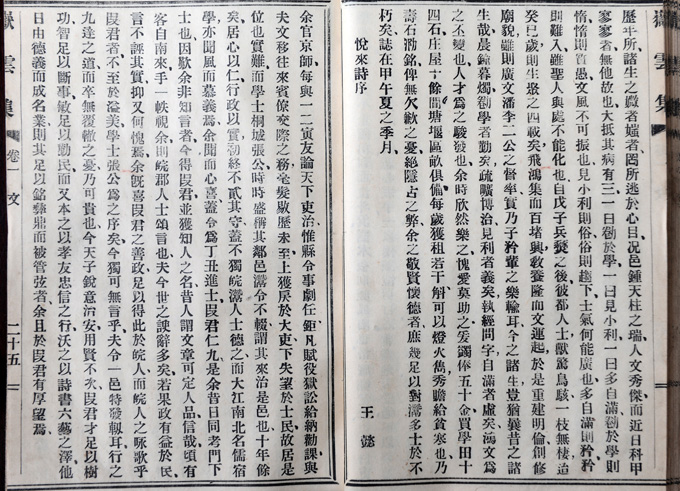 歷平所諸生之微者媸者罔所逃於心目况邑鍾天柱之瑞人文秀傑而近日科甲
寥寥者無他故也大抵其病有三一曰勌於學一曰見小利一曰多自滿勌於學則
惰惰則首愚文風不可振也見小利則俗俗則趨下士氣何能廣也多自滿則矜矜
則難入雖聖人與處不能化也自戊子兵燹之後彼都人士獸驚鳥駭一枝無棲迨
癸巳歲則生聚之四載矣飛鴻集而百堵興教養隆而文運起於是重建明倫創修
廟貌雖則廣文潘李二公之督率實乃子矜輩之樂輸耳今之諸生豈猶曩昔之諸
生哉晨鐘暮燭勌學者勤矣疏曠博洽見利者義矣執經問字自滿者虛矣鴻文爲
之丕變也人才爲之駿發也余時欣然樂之愧愛莫助之爰蠲俸五十金買學田十
四石庄屋十餘間塘堰區畝俱備每歲獲租若干斛可以燈火雋秀贍給貧寒也乃
壽石泐銘俾無欠歉之憂絕隱占之弊余之敬賢懷德者庶幾足以對灊多士於不
朽矣誌在甲午夏之季月
悅來詩序 王懿
余官京師每與一二寅友論天下吏治惟縣令事劇任鉅凡賦役獄訟給納勸課與
夫文移往來賓僚交際之務毫髮敢歷未至上獲戾於大吏下失望於士民故居是
位也實難而學士桐城張公時時盛稱其鄰邑灊令不輟謂其來治是邑也十年餘
矣居心以仁行政以實勤終不貳其守蓋不獨皖灊人士德之而大江南北名儒宿
學亦聞風而慕義焉余聞而心喜蓋令爲丁丑進士叚君仁九是余昔日同考門下
士也因歎余非知言者今得叚君並獲知人之名昔人謂文章可定人品信哉頃有
客自南來手一帙視余則皖郡人士頌言也夫今世之諛辭多矣若果政有益於民
言不誣其實抑又何愧焉余旣喜叚君之善政足以得此於皖人而皖人之咏歌乎
叚君者不至於溢美學士張公爲之序矣今獨可無言乎夫令一邑特發軔耳行之
九達之道而卒無覆轍之憂乃可貴也今天子銳意治安用賢不次叚君才足以樹
功智足以斷事敏足以勤民而又本之以孝友忠信之行沃之以詩書六藝之澤他
日由德義而成名業則其足以銘彝鼎而被管弦者余且於叚君有厚望焉
嶽雲集 卷一 文 二十五